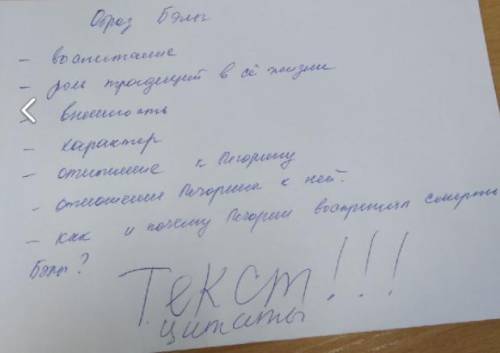 Образ Бэлы
- воспитание
- роль традиций в её жизни
- внешность
- характер
- отношение к Печорину
- отношение Печорина к ней.
- как и почему Печорин воспринял смерть
Бэлы?
ТЕКСТ!!!
цитаты